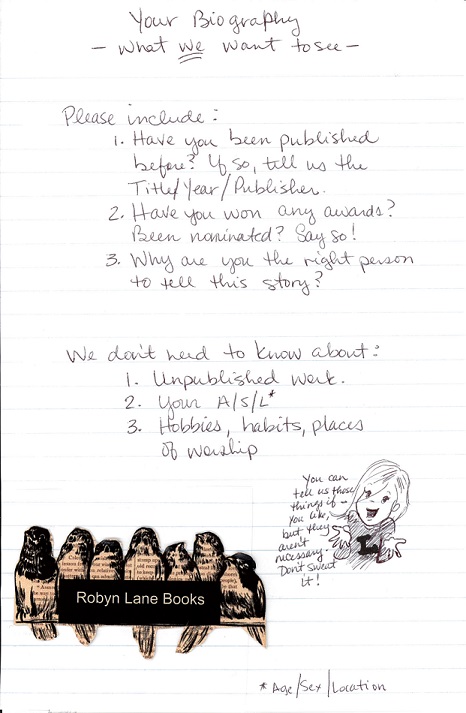 Your Biography
- What we want to see -
Please include:
1. Have you been published
before? If so, tell us the
Title/Year/Publisher.
2. Have you won any awards?
Been nominated? Say so!
3. Why are you the right person
to tell this story?
We don't need to know about:
1. Unpublished work.
2. Your A/S/L*
3. Hobbies, habits, places
of worship
You can
tell us those
things if
you like,
but they
aren't
necessary.
Don't sweat
it!
L
Robyn Lane Books
*Age/Sex/Location